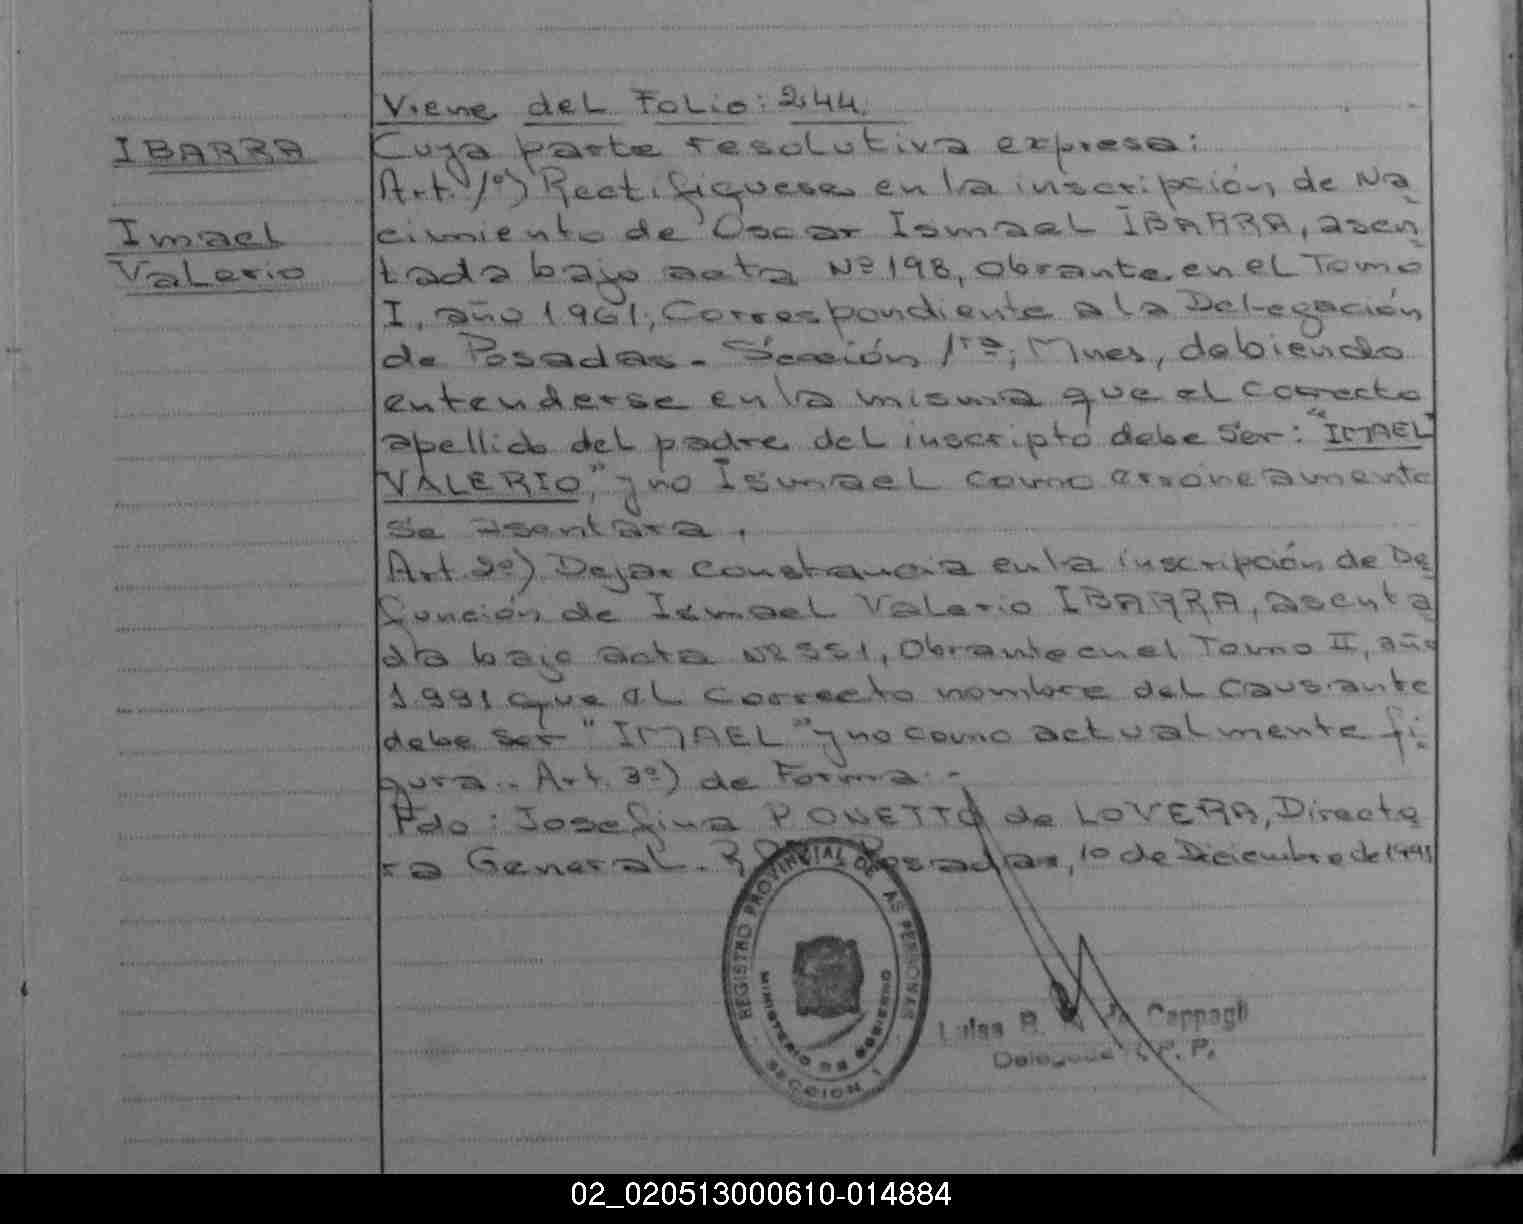 Viene del Folio: 244.
IBARRA
Imael
Valerio
Cuya parte resolutiva expresa:
Art. 1º) Rectifiquese en la inscripción de Na
cimiento de Oscar Ismael IBARRA, asen
tada bajo acta Nº 198, obrante en el Tomo
I, año 1961, Correspondiente a la Delegación
de Posadas - Sección 1ra, Mnes, debiendo
entenderse en la misma que el correcto
apellido del padre del inscripto debe ser: "IMAEL
VALERIO," y no Ismael como erróneamente
se asentara.
Art. 2º) Dejar constancia en la inscripción de De
función de Ismael Valerio IBARRA, asenta
da bajo acta Nº 551, Obrante en el Tomo II, año
1.991 que el correcto nombre del causante
debe ser "IMAEL" y no como actualmente fi
gura.. Art. 3º) de Forma.-
Fdo: Josefina PONETTO de LOVERA, Directo
ra General. Posadas, 10 de Diciembre de 1991
REGISTRO PROVINCIAL DE AS PERSONAS
MINISTERIO DE GOBIERNO
SECCION 1
Luisa B. Cappagli
Delegada R. P. P.
02_020513000610-014884